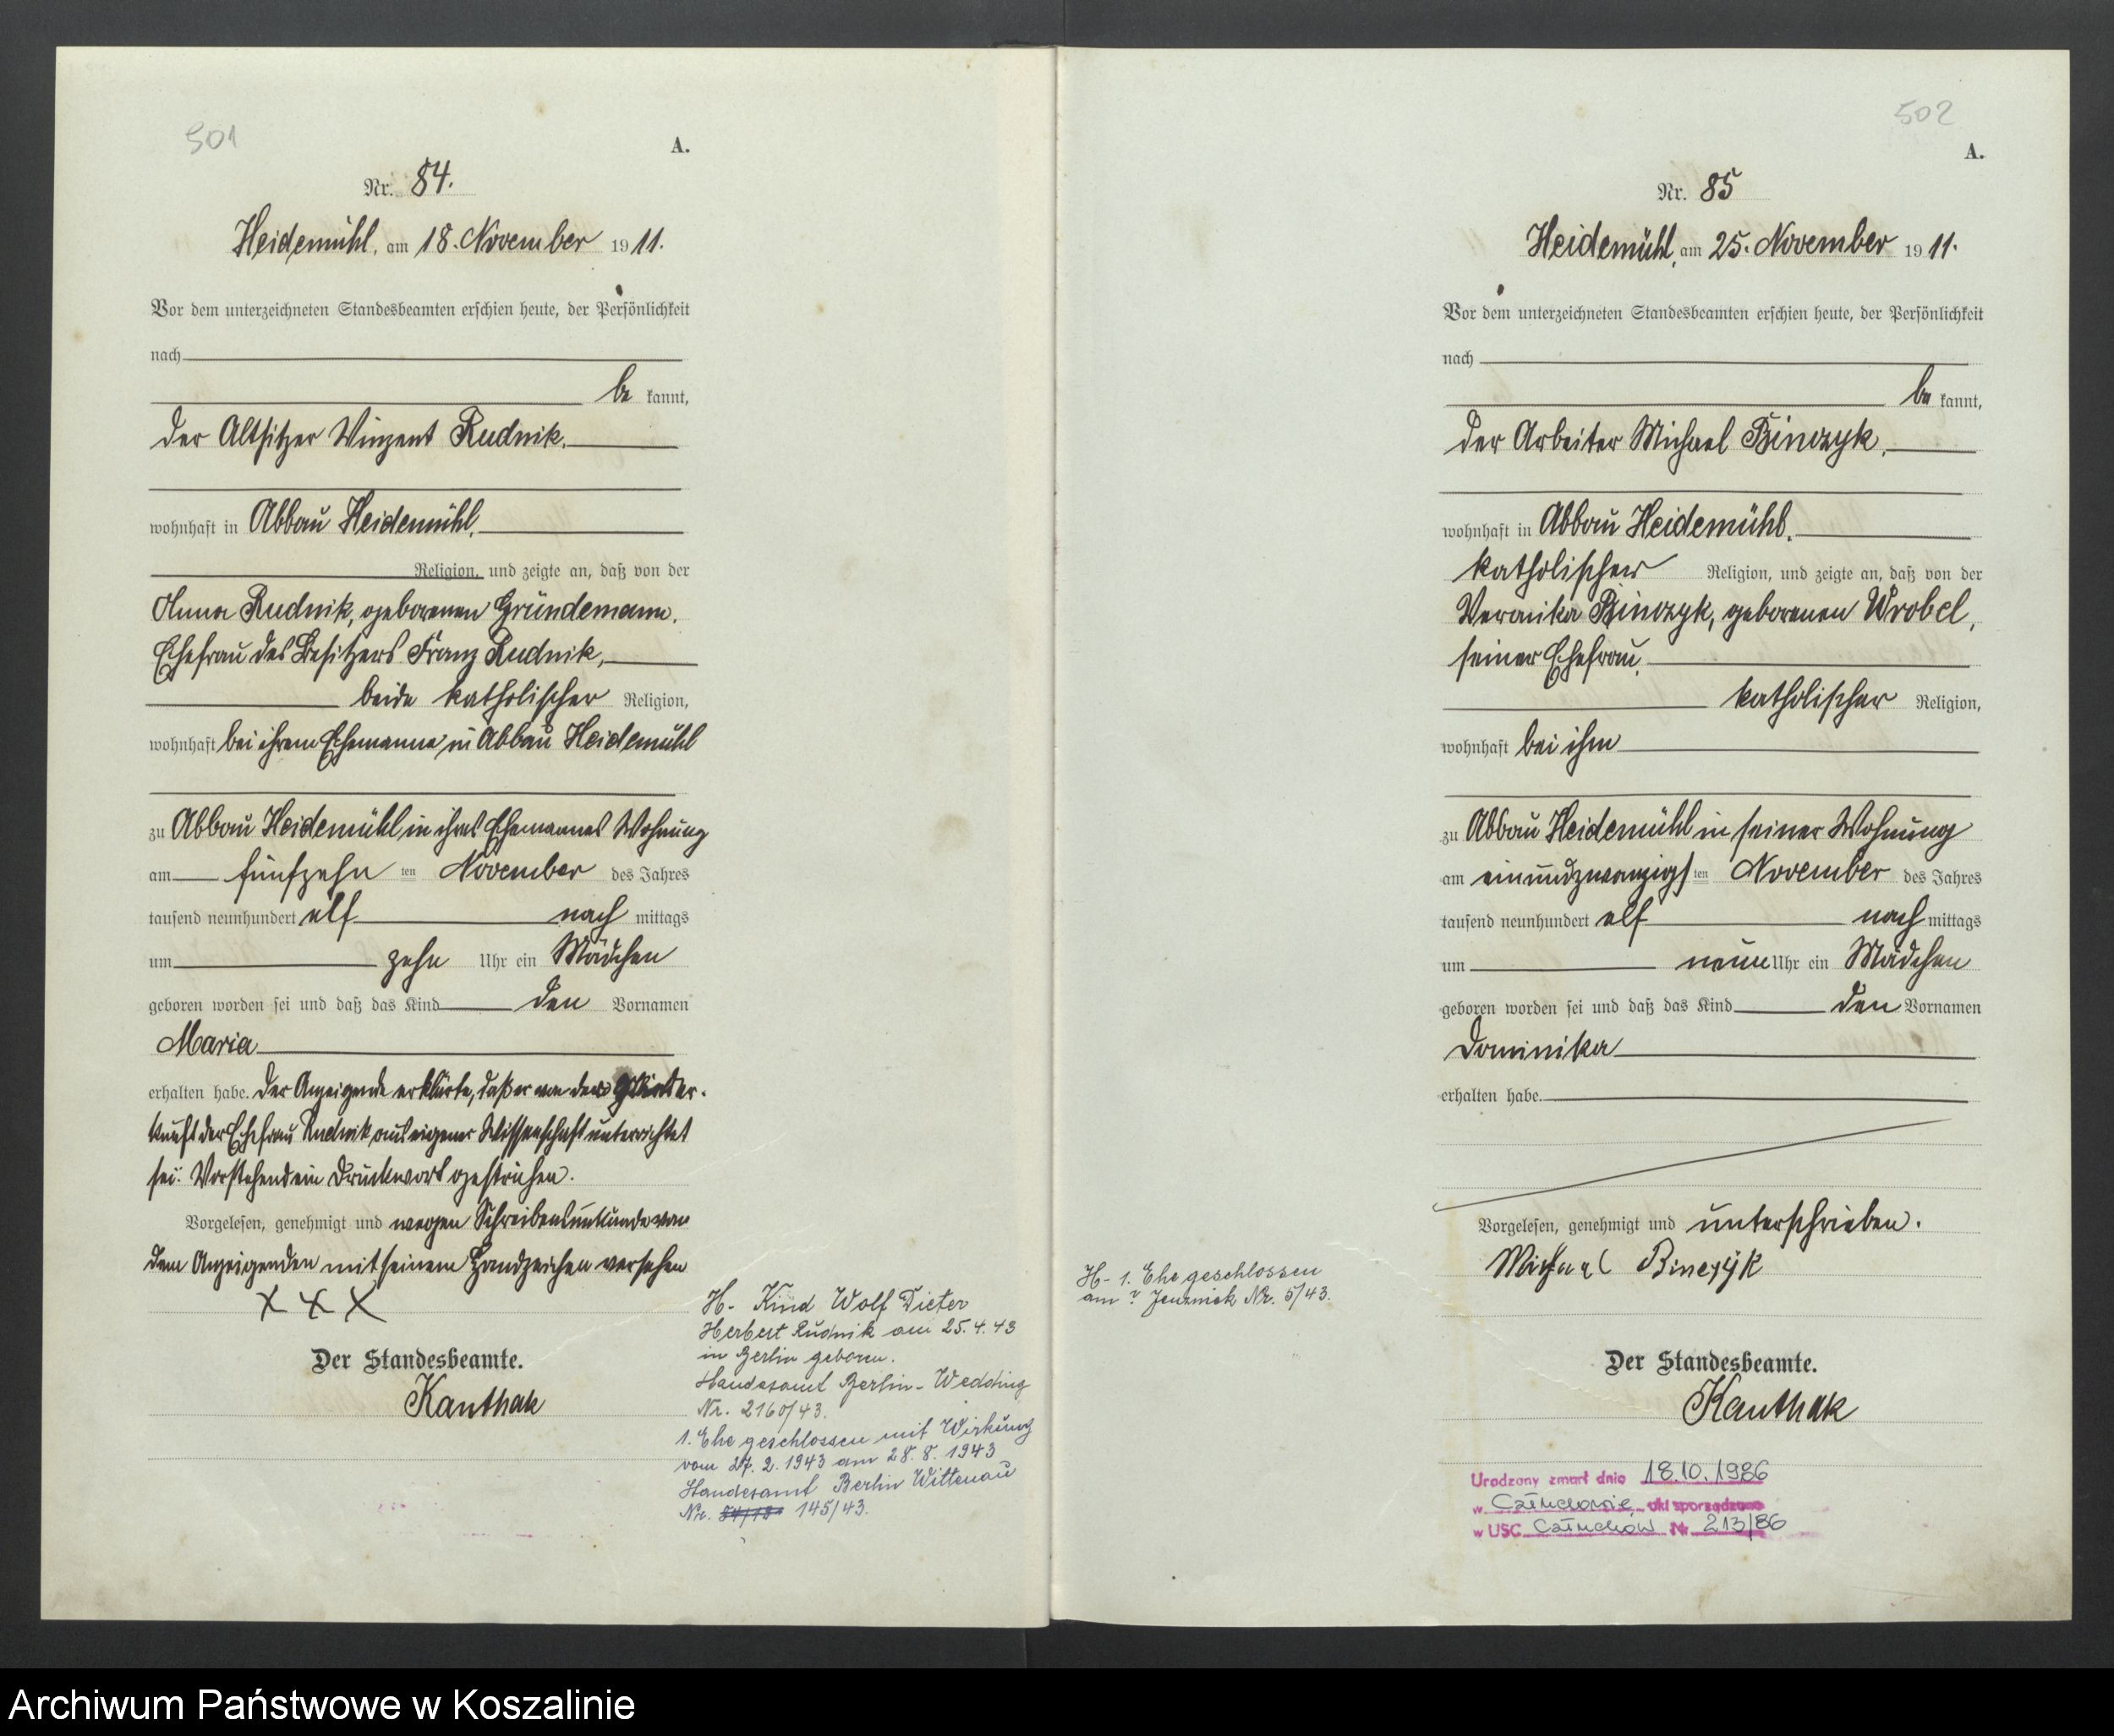 501
A.
Nr. 84.
Heidemühl, am 18. November 1911.
Vor dem unterzeichneten Standesbeamten erschien heute, der Persönlichkeit
nach
be kannt,
der Altsitzer Vinzent Rudnik,
wohnhaft in Abbau Heidemühl,
Religion, und zeigte an, daß von der
Anna Rudnik, geborenen Gründemann,
Ehefrau des Besitzers Franz Rudnik,
beide katholischer Religion,
wohnhaft bei ihrem Ehemanne in Abbau Heidemühl
zu Abbau Heidemühl in ihres Ehemannes Wohnung
am fünfzehn ten November des Jahres
tausend neunhundert elf nach mittags
um zehn Uhr ein Mädchen
geboren worden sei und daß das Kind den Vornamen
Maria
erhalten habe. Der Anzeigende erklärte, daß er von der Nieder-
kunft der Ehefrau Rudnik aus eigener Wissenschaft unterrichtet
sei. Vorstehend ein Druckwort gestrichen.
Vorgelesen, genehmigt und wegen Schreibensunkunde von
dem Anzeigenden mit seinem Handzeichen versehen
X X X
Der Standesbeamte.
Kanthak
H- Kind Wolf Dieter
Herbert Rudnik am 25.4.43
in Berlin geboren.
Standesamt Berlin-Wedding
Nr. 2160/43.
1. Ehe geschlossen mit Wirkung
vom 27.2.1943 am 28.8.1943
Standesamt Berlin Wittenau
Nr. 145/43.
502
A.
Nr. 85
Heidemühl, am 25. November 1911.
Vor dem unterzeichneten Standesbeamten erschien heute, der Persönlichkeit
nach
be kannt,
der Arbeiter Michael Binczyk,
wohnhaft in Abbau Heidemühl,
katholischer Religion, und zeigte an, daß von der
Veronika Binczyk, geborenen Wrobel,
seiner Ehefrau,
katholischer Religion,
wohnhaft bei ihm
zu Abbau Heidemühl in seiner Wohnung
am einundzwanzigs ten November des Jahres
tausend neunhundert elf nach mittags
um neun Uhr ein Mädchen
geboren worden sei und daß das Kind den Vornamen
Dominika
erhalten habe.
Vorgelesen, genehmigt und unterschrieben.
Michael Binczyk
H- 1. Ehe geschlossen
am ? Jenznick Nr. 5/43.
Der Standesbeamte.
Kanthak
Urodzony zmarł dnia 18.10.1986
w Człuchowie akt sporządzono
w USC Człuchów Nr 213/86
Archiwum Państwowe w Koszalinie